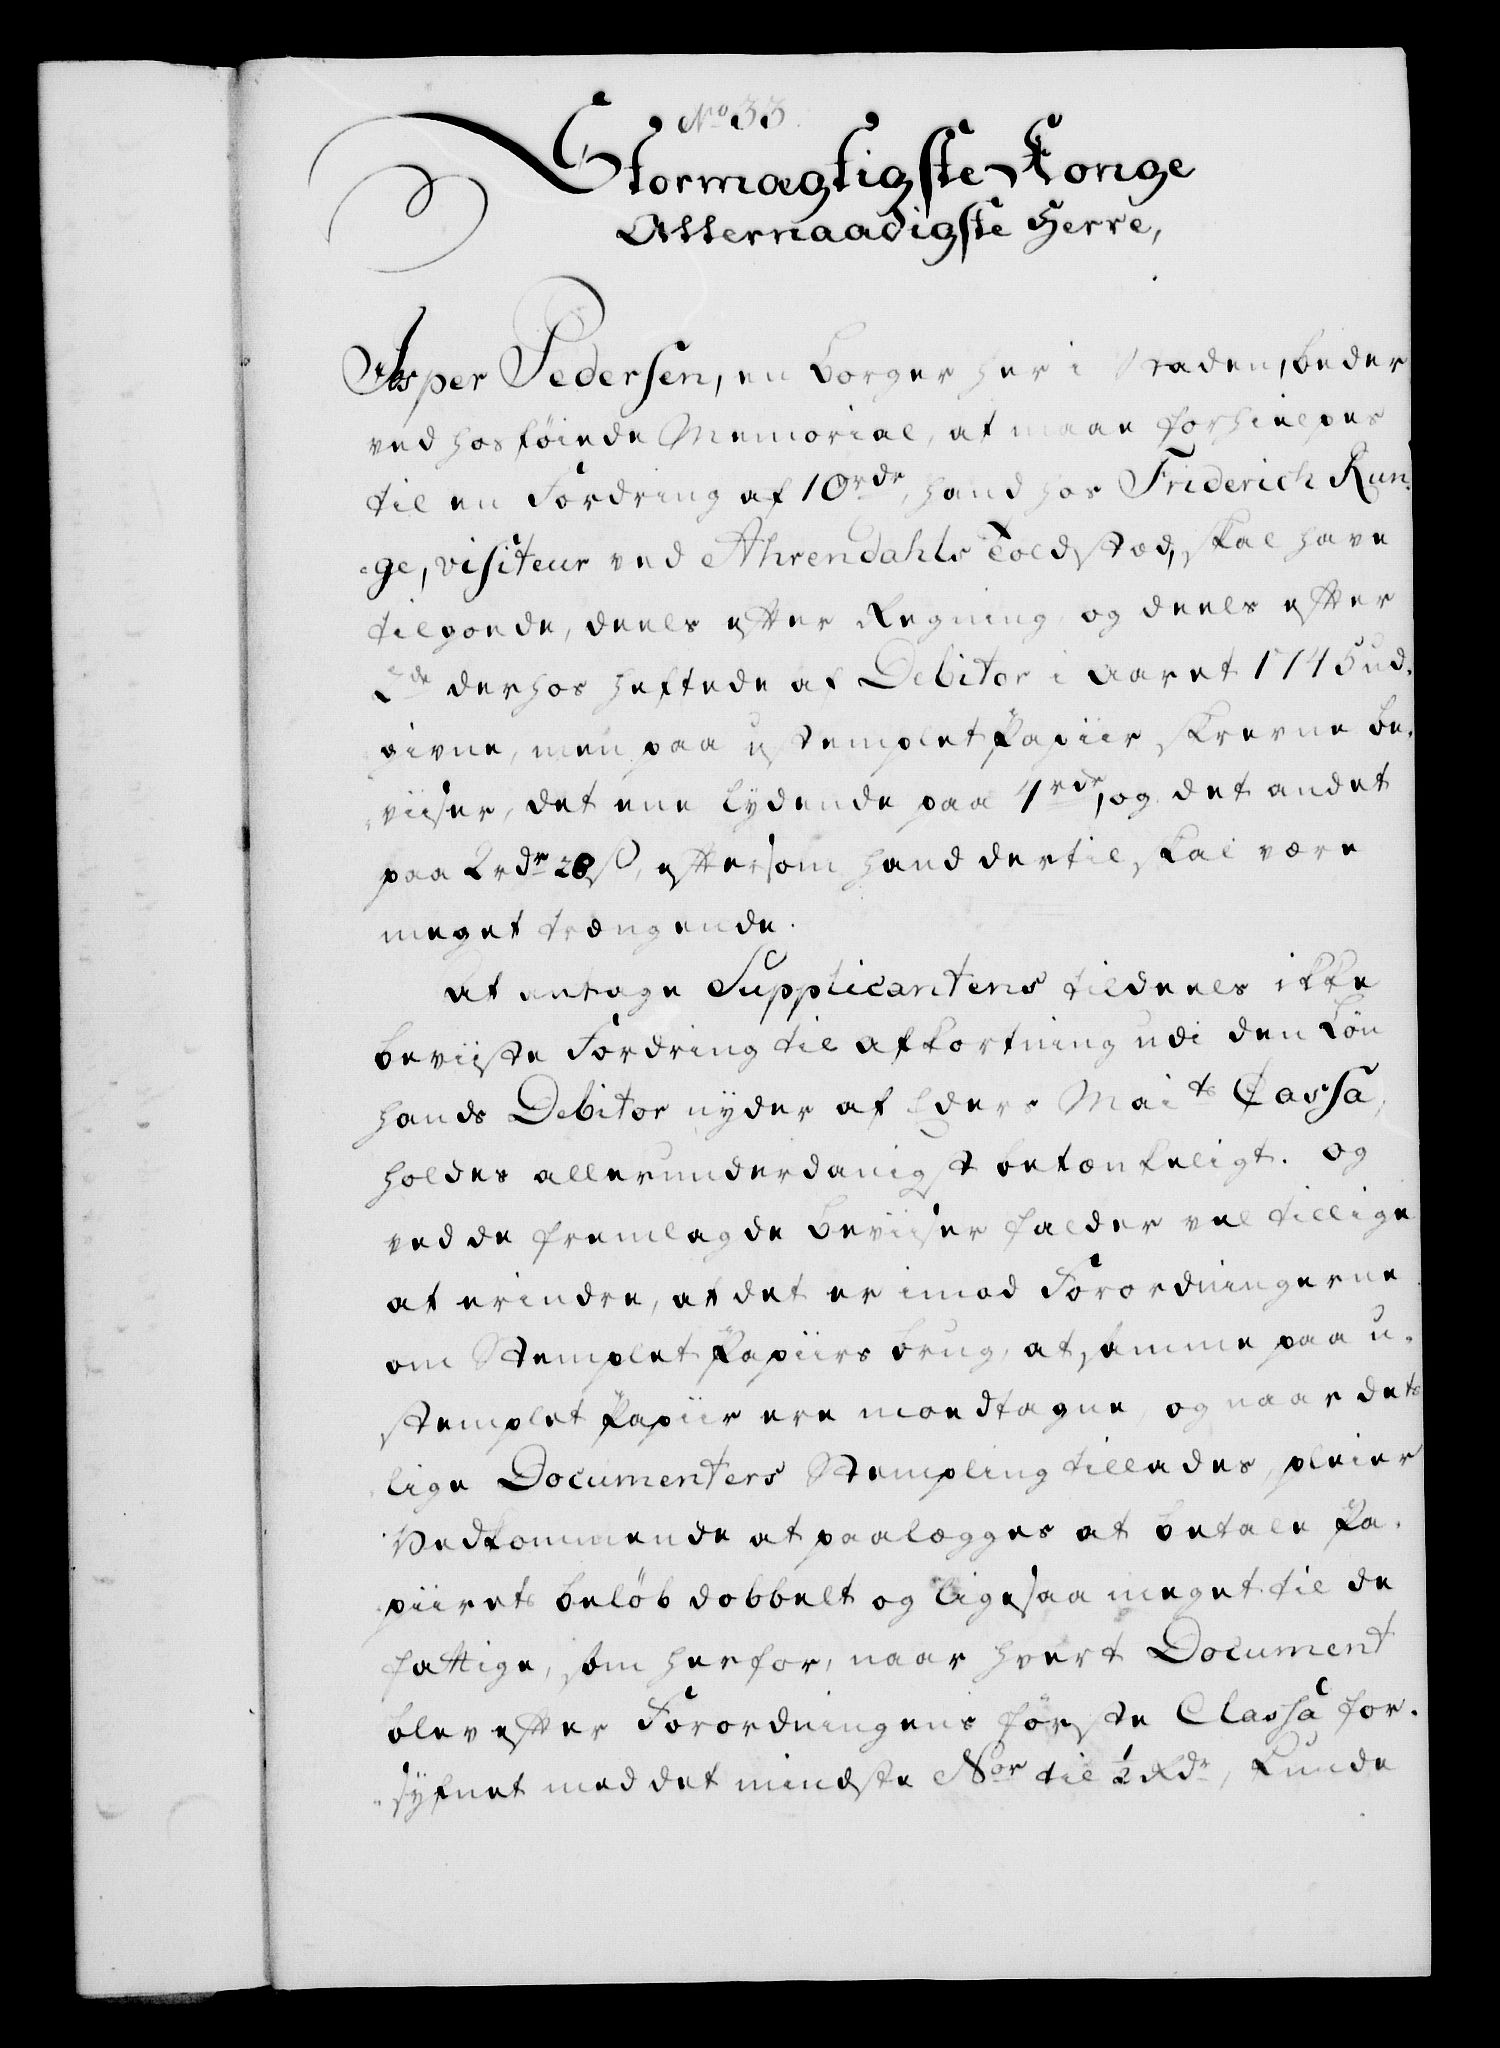 No 33.
Stormægtigste Konge
Allernaadigste Herre,
Jesper Pedersen, en Borger her i Staden, beder
ved hosføiede Memorial, at maae forhielpes
til en Fordring af 10 rdr, hand hos Friderich Run-
ge, visiteur ved Ahrendahls Toldsted, skal have
tilgode, deels efter Regning, og deels efter
2de derhos heftede af Debitor i aaret 1745 ud-
givne, men paa ustemplet Papiir skrevne be-
viiser, det ene lydende paa 4 rdr, og det andet
paa 2 rdr 28 s, eftersom hand dertil skal være
meget trængende.
At antage Supplicantens tildeels ikke
beviiste Fordring til afkortning udi den Løn
hands Debitor nyder af Eders Maits Cassa,
holdes allerunderdanigst betænkeligt. og
ved de fremlagde Beviiser falder vel tillige
at erindre, at det er imod Forordningerne
om Stemplet Papiirs brug, at samme paa u-
stemplet Papiir ere modtagne, og naar des
lige Documenters Stempling tillades, pleier
Vedkommende at paalægges at betale Pa-
piirets beløb dobbelt og ligesaa meget til de
fattige, som herfor, naar hvert Document
blev efter Forordningens første Classa for-
synet med det mindste Nor til ½ Rdr, kunde